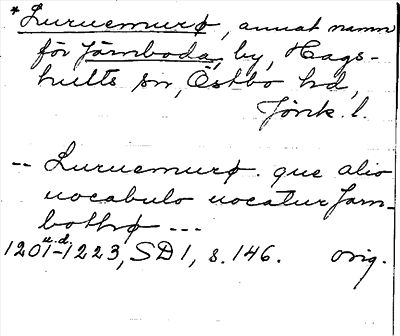 * Luruemurø, annat namn
för Järnboda, by, Hags-
hults sn, Östbo hd,
Jönk. l.
-- Luruemurø. que alio
uocabulo uocatur Jarn-
bothø ---
u.d.
1201-1223, SD 1, s. 146. orig.